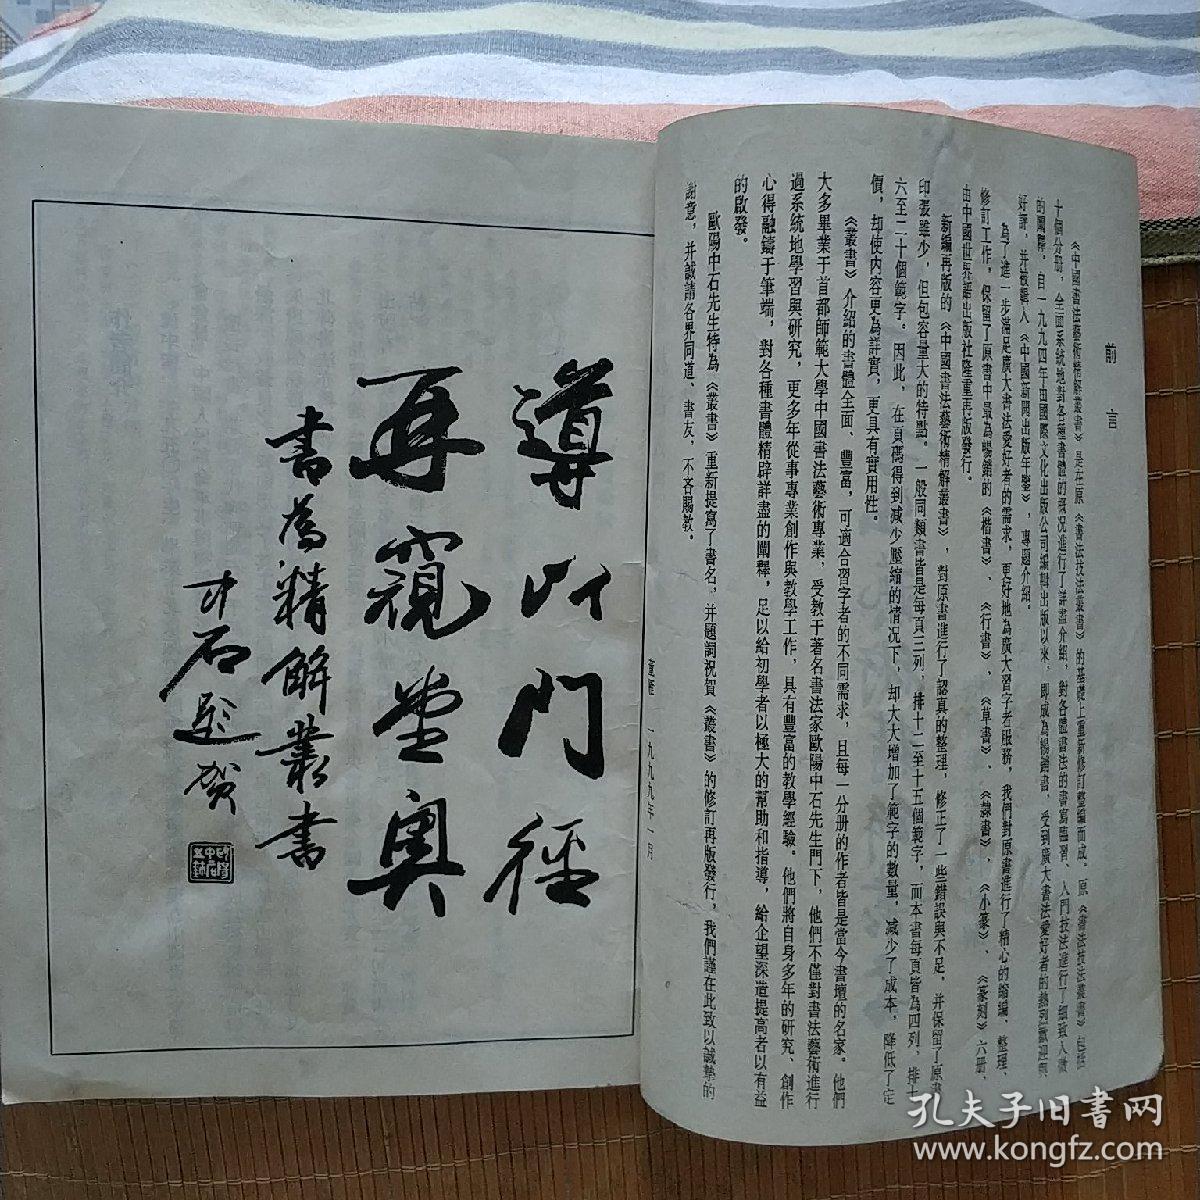 前言
《中國書法藝術精解叢書》是在原《書法技法叢書》的基礎上重新修訂整編而成。原《書法技法叢書》包括
十個分册，全面系統地對各種書體的概况進行了詳盡介紹，對各體書法的書寫臨習、入門技法進行了細致入微
的闡釋。自一九九四年由國際文化出版公司編輯出版以來，即成為暢銷書，受到廣大書法愛好者的熱烈歡迎與
好評，并被載入《中國新聞出版年鑒》，專題介紹。
為了進一步滿足廣大書法愛好者的需求，更好地為廣大習字者服務，我們對原書進行了精心的縮編、整理、
修訂工作。保留了原書中最為暢銷的《楷書》、《行書》、《草書》、《隸書》、《小篆》、《篆刻》六册，
由中國世界語出版社隆重再版發行。
新編再版的《中國書法藝術精解叢書》，對原書進行了認真的整理，修正了一些錯誤與不足，并保留了原書
印張雖少，但包容量大的特點。一般同類書皆是每頁三列，排十二至十五個範字，而本書每頁皆為四列，排十
六至二十個範字。因此，在頁碼得到減少壓縮的情况下，却大大增加了範字的數量，減少了成本，降低了定
價，却使内容更為詳實，更具有實用性。
《叢書》介紹的書體全面、豐富，可適合習字者的不同需求，且每一分册的作者皆是當今書壇的名家。他們
大多畢業于首都師範大學中國書法藝術專業，受教于著名書法家歐陽中石先生門下，他們不僅對書法藝術進行
過系統地學習與研究，更多年從事專業創作與教學工作，具有豐富的教學經驗。他們將自身多年的研究、創作
心得融鑄于筆端，對各種書體精辟詳盡的闡釋，足以給初學者以極大的幫助和指導，給企望深造提高者以有益
的啟發。
歐陽中石先生特為《叢書》重新提寫了書名，并題詞祝賀《叢書》的修訂再版發行，我們謹在此致以誠摯的
謝意，并誠請各界同道、書友，不吝賜教。
董雁 一九九九年一月
導以門徑
再窺堂奥
書為精解叢書
中石題賀
孔夫子旧書网
www.kongfz.com